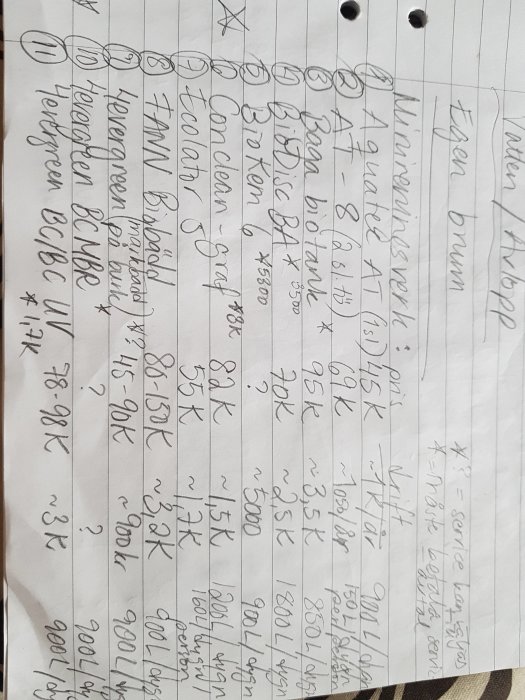 Vatten / Avlopp
Egen brunn
*? = service kan
* = måste betala
Minireningsverk: pris drift
① Aquatek AT (1 st) 45K ~1K/år 900L/dygn
② AT-8 (2 st) 69K 150L/dygn person
③ Baga biotank * 95K ~3,5K 850L/dygn
④ BioDisc BA * 3500 70K ~2,5K 1800L/dygn
⑤ Biokem 6 *5800 ? ~5000 900L/dygn
⑥ Conclean-graf *3K 82K ~1,5K 1200L/dygn
⑦ Ecolator 5 55K ~1,7K 160L/dygn/person
⑧ FANN Biobädd 80-150K ~3,2K 900L/dygn
⑨ 4evergreen (markbädd på burk) *? 45-90K ~900kr 900L/dygn
⑩ 4evergreen BCNBR * ? ? 900L/dygn
⑪ 4evergreen BC/BC UV * 1,7K 78-98K ~3K 900L/dygn